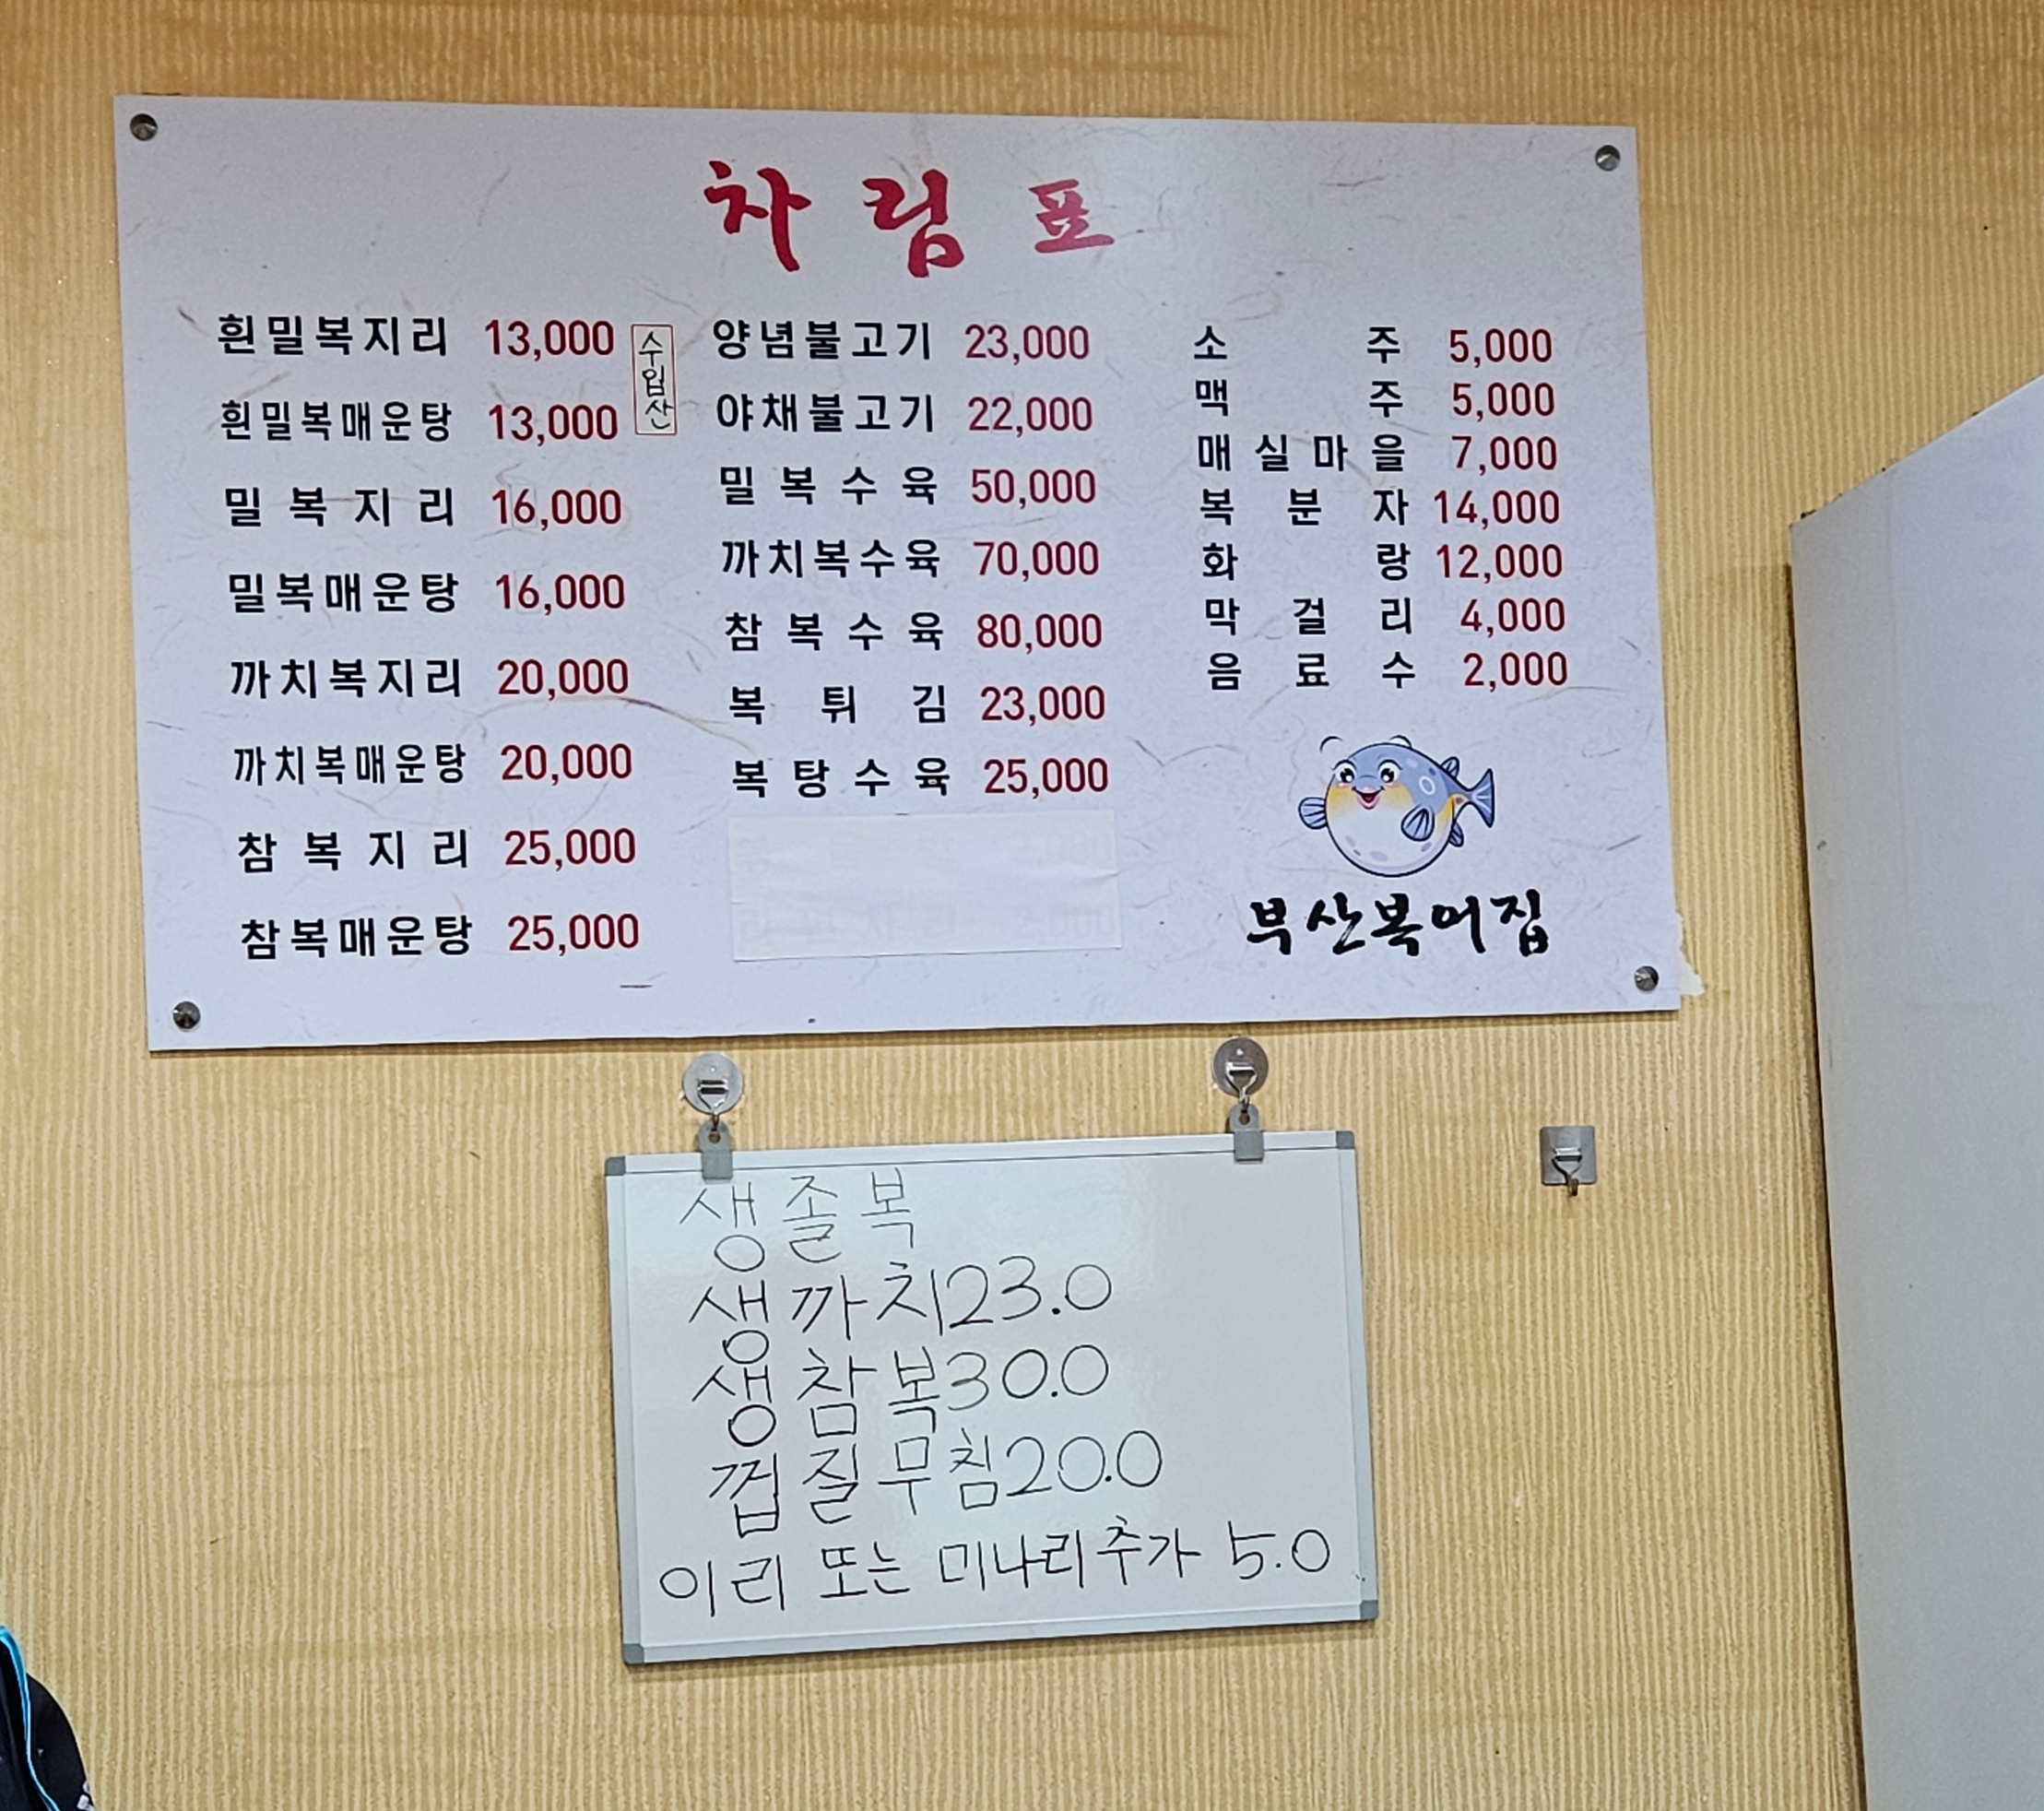 차림표
흰밀복지리 13,000
흰밀복매운탕 13,000
수입산
밀복지리 16,000
밀복매운탕 16,000
까치복지리 20,000
까치복매운탕 20,000
참복지리 25,000
참복매운탕 25,000
양념불고기 23,000
야채불고기 22,000
밀복수육 50,000
까치복수육 70,000
참복수육 80,000
복튀김 23,000
복탕수육 25,000
소주 5,000
맥주 5,000
매실마을 7,000
복분자 14,000
화랑 12,000
막걸리 4,000
음료수 2,000
부산복어집
생졸복
생까치23.0
생참복30.0
껍질무침20.0
이리 또는 미나리추가 5.0